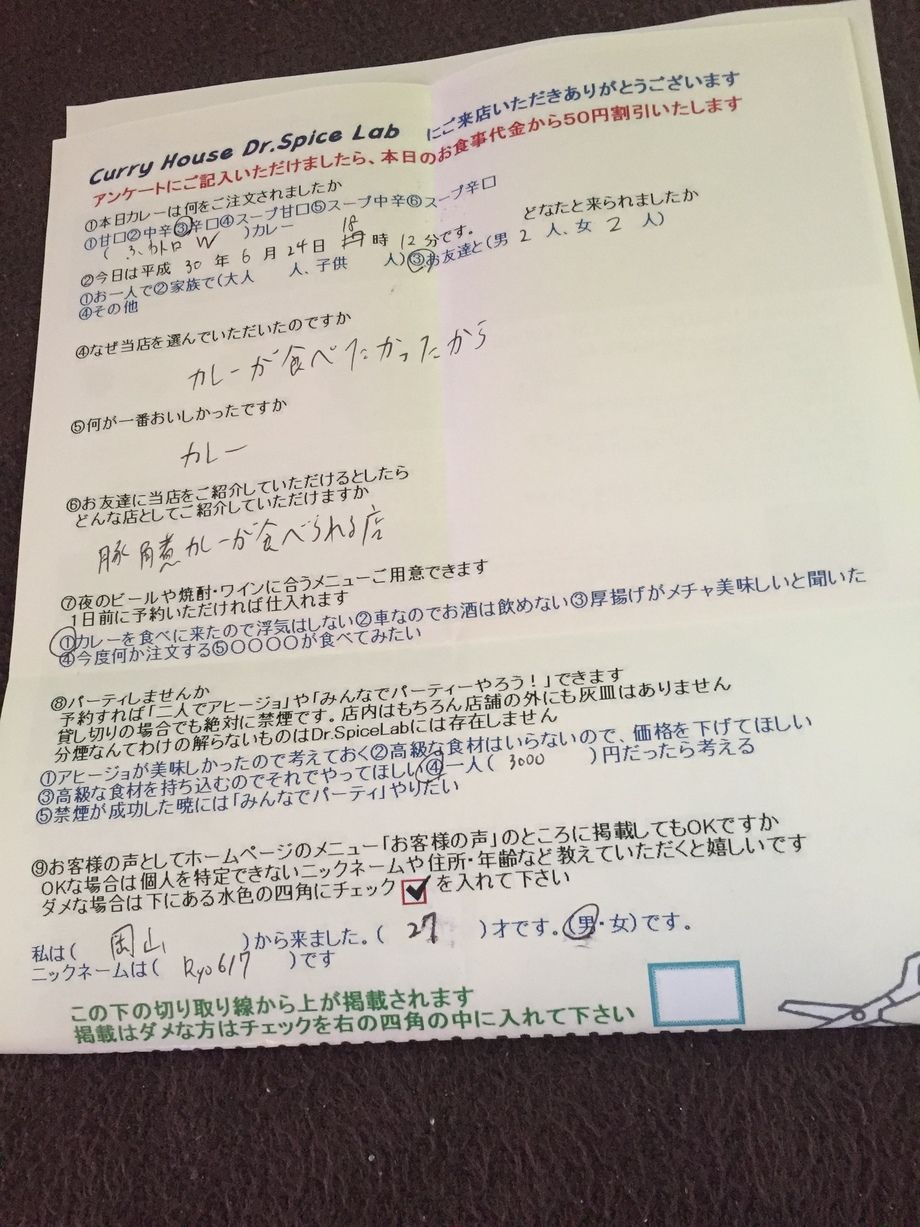 Curry House Dr.Spice Lab にご来店いただきありがとうございます
アンケートにご記入いただけましたら、本日のお食事代金から50円割引いたします
①本日カレーは何をご注文されましたか
①甘口②中辛③辛口④スープ甘口⑤スープ中辛⑥スープ辛口
( W )カレー どなたと来られましたか
②今日は平成 30 年 6 月 24 日 18 時 12 分です。
①お一人で②家族で(大人 人、子供 人)③お友達と(男 2 人、女 2 人)
④その他
④なぜ当店を選んでいただいたのですか
カレーが食べたかったから
⑤何が一番おいしかったですか
カレー
⑥お友達に当店をご紹介していただけるとしたら
どんな店としてご紹介していただけますか
豚角煮カレーが食べられる店
⑦夜のビールや焼酎・ワインに合うメニューご用意できます
1日前に予約いただければ仕入れます
①カレーを食べに来たので浮気はしない②車なのでお酒は飲めない③厚揚げがメチャ美味しいと聞いた
④今度何か注文する⑤〇〇〇〇が食べてみたい
⑧パーティしませんか
予約すれば「二人でアヒージョ」や「みんなでパーティーやろう!」できます
貸し切りの場合でも絶対に禁煙です。店内はもちろん店舗の外にも灰皿はありません
分煙なんてわけの解らないものはDr.SpiceLabには存在しません
①アヒージョが美味しかったので考えておく②高級な食材はいらないので、価格を下げてほしい
③高級な食材を持ち込むのでそれでやってほしい④一人( 3000 )円だったら考える
⑤禁煙が成功した暁には「みんなでパーティ」やりたい
⑨お客様の声としてホームページのメニュー「お客様の声」のところに掲載してもOKですか
OKな場合は個人を特定できないニックネームや住所・年齢など教えていただくと嬉しいです
ダメな場合は下にある水色の四角にチェック を入れて下さい
私は( 岡山 )から来ました。( 27 )才です。(男・女)です。
ニックネームは( Ryo617 )です
この下の切り取り線から上が掲載されます
掲載はダメな方はチェックを右の四角の中に入れて下さい